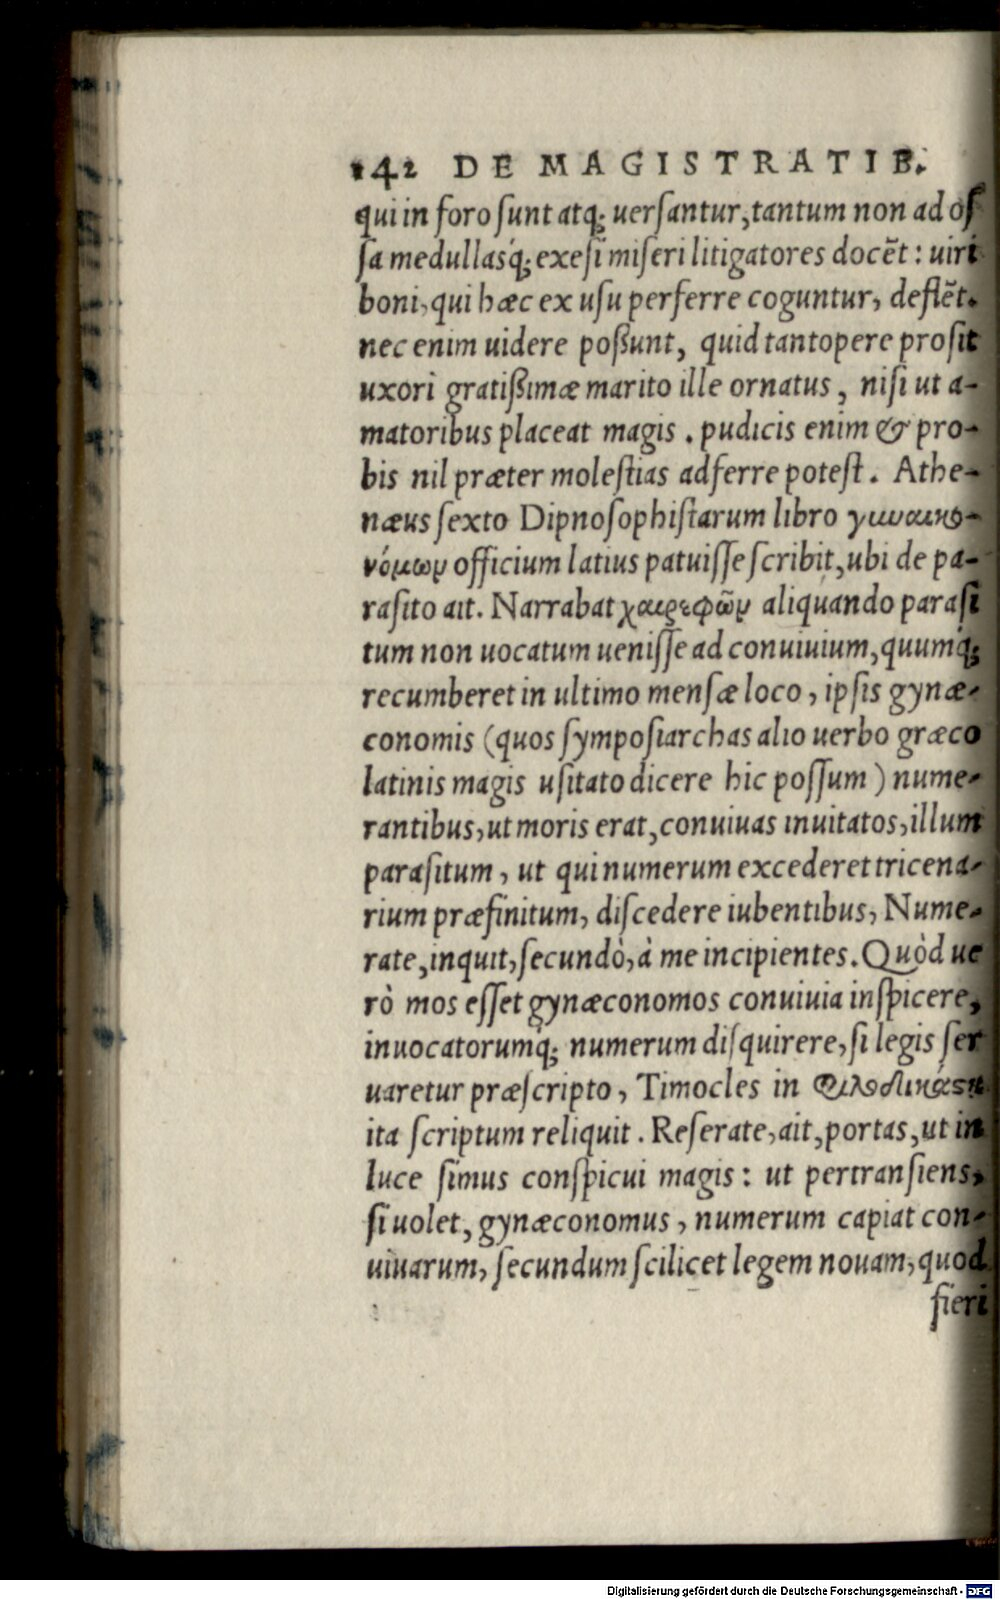 142 DE MAGISTRATIB.
qui in foro ſunt atq; uerſantur, tantum non ad oſ
ſa medullasq́; exeſi miſeri litigatores docẽt: uiri
boni, qui hæc ex uſu perferre coguntur, deflẽt.
nec enim uidere poßunt, quid tantopere proſit
uxori gratißimæ marito ille ornatus, niſi ut a-
matoribus placeat magis. pudicis enim & pro-
bis nil præter moleſtias adferre poteſt. Athe-
næus ſexto Dipnoſophiſtarum libro γυναικο-
νόμων officium latius patuiſſe ſcribit, ubi de pa-
raſito ait. Narrabat χαιρεφῶν aliquando paraſi
tum non uocatum ueniſſe ad conuiuium, quumq́;
recumberet in ultimo menſæ loco, ipſis gynæ-
conomis (quos ſympoſiarchas alio uerbo græco
latinis magis uſitato dicere hic poſſum) nume-
rantibus, ut moris erat, conuiuas inuitatos, illum
paraſitum, ut qui numerum excederet tricena-
rium præfinitum, diſcedere iubentibus, Nume-
rate, inquit, ſecundò, à me incipientes. Quòd ue
rò mos eſſet gynæconomos conuiuia inſpicere,
inuocatorumq́; numerum diſquirere, ſi legis ſer
uaretur præſcripto, Timocles in Φιλοδικάστῃ
ita ſcriptum reliquit. Reſerate, ait, portas, ut in
luce ſimus conſpicui magis: ut pertranſiens,
ſi uolet, gynæconomus, numerum capiat con-
uiuarum, ſecundum ſcilicet legem nouam, quod
fieri
Digitalisierung gefördert durch die Deutsche Forschungsgemeinschaft - DFG